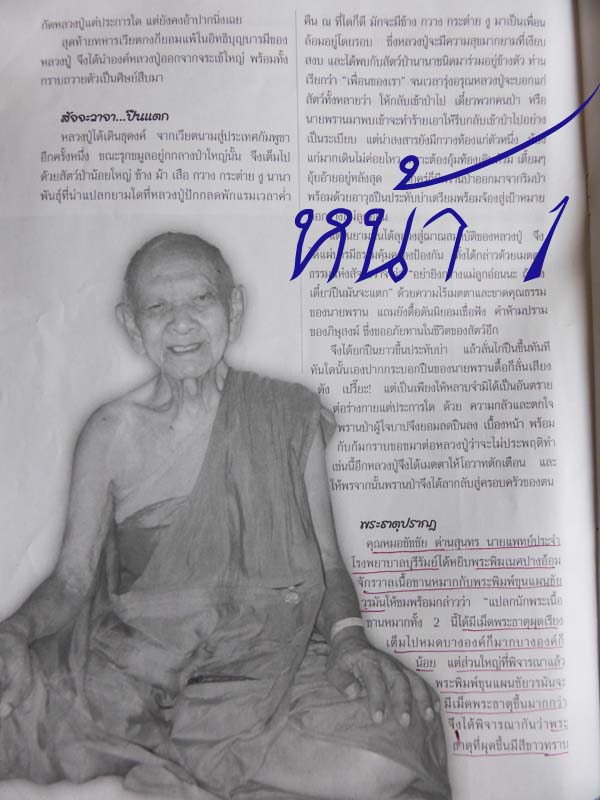 กัดหลวงปู่แต่ประการใด แต่ยังคงอ้าปากนิ่งเฉย
สุดท้ายทหารเวียตกงก็ยอมแพ้ในอิทธิบุญบารมีของ
หลวงปู่ จึงได้นำองค์หลวงปู่ออกจากจระเข้ใหญ่ พร้อมทั้ง
กราบถวายตัวเป็นศิษย์สืบมา
สัจจะวาจา...ปืนแตก
หลวงปู่ได้เดินธุดงค์ จากเวียตนามสู่ประเทศกัมพูชา
อีกครั้งหนึ่ง ขณะรุกขมูลอยู่กลางป่าใหญ่นั้น จึงเต็มไป
ด้วยสัตว์ป่าน้อยใหญ่ ช้าง ม้า เสือ กวาง กระต่าย งู นานา
พันธุ์ที่น่าแปลกยามใดที่หลวงปู่ปักกลดพักแรมเวลาค่ำ
คืน ณ ที่ใดก็ดี มักจะมีช้าง กวาง กระต่าย งู มาเป็นเพื่อน
ล้อมอยู่โดยรอบ ซึ่งหลวงปู่จะมีความสุขมากยามที่เงียบ
สงบ และได้พบกับสัตว์ป่านานาชนิดมาร่วมอยู่ข้างตัว ท่าน
เรียกว่า "เพื่อนของเรา" จนเวลารุ่งอรุณหลวงปู่จะบอกแก่
สัตว์ทั้งหลายว่า ให้กลับเข้าป่าไป เดี๋ยวพวกคนป่า หรือ
นายพรานมาพบเข้าจะทำร้ายเอาให้รีบกลับเข้าป่าไปอย่าง
เป็นระเบียบ แต่น่าสงสารยังมีกวางท้องแก่ตัวหนึ่ง ท้อง
แก่มากเดินไม่ค่อยไหว จะต้องอุ้มท้องเดิน เตี้ยมๆ
อุ้ยอ้ายอยู่หลังสุด ออกมาจากริมป่า
พร้อมด้วยอาวุธปืนประทับบ่าเตรียมพร้อมจ้องสู่เป้าหมาย
หน้า 1
ของหลวงปู่ จึง
"อย่ายิงกวางแม่ลูกอ่อนนะ
เดี๋ยวปืนมันจะแตก" ด้วยความไร้เมตตาและขาดคุณธรรม
ของนายพราน แถมยังดื้อดันมิยอมเชื่อฟัง คำห้ามปราม
ของภิษุสงฆ์ ซึ่งขออภัยทานในชีวิตของสัตว์อีก
จึงได้ยกปืนยาวขึ้นประทับบ่า แล้วลั่นไกปืนขึ้นทันที
ทันใดนั้นเองปากกระบอกปืนของนายพรานดื้อก็ลั่นเสียง
ดัง เปรี๊ยะ! แต่เป็นเพียงให้หลาบจำมิได้เป็นอันตราย
ต่อร่างกายแต่ประการใด ด้วย ความกลัวและตกใจ
พรานป่าผู้ใจบาปจึงยอมลดปืนลง เบื้องหน้า พร้อม
กับก้มกราบขอขมาต่อหลวงปู่ว่าจะไม่ประพฤติทำ
เช่นนี้อีกหลวงปู่จึงได้เมตตาให้โอวาทตักเตือน และ
ให้พรจากนั้นพรานป่าจึงได้ลากลับสู่ครอบครัวของตน
พระธาตุปรากฏ
คุณหมอชัยชัย ด่านสุนทร นายแพทย์ประจำ
โรงพยาบาลบุรีรัมย์ได้หยิบพระพิฆเนศปางอ้อม
จักรวาลเนื้อชานหมากกับพระพิมพ์ขุนแผนชัย
วรมันให้ชมพร้อมกล่าวว่า "แปลกนักพระเนื้อ
ชานหมากทั้ง 2 นี้ได้มีเม็ดพระธาตุผุดเรียง
เต็มไปหมดบางองค์ก็มากบางองค์ก็
น้อย แต่ส่วนใหญ่ที่พิจารณาแล้ว
พระพิมพ์ขุนแผนชัยวรมันจะ
มีเม็ดพระธาตุขึ้นมากกว่า
จึงได้พิจารณากันว่าพระ
ธาตุที่ผุดขึ้นมีสีขาวทราบ